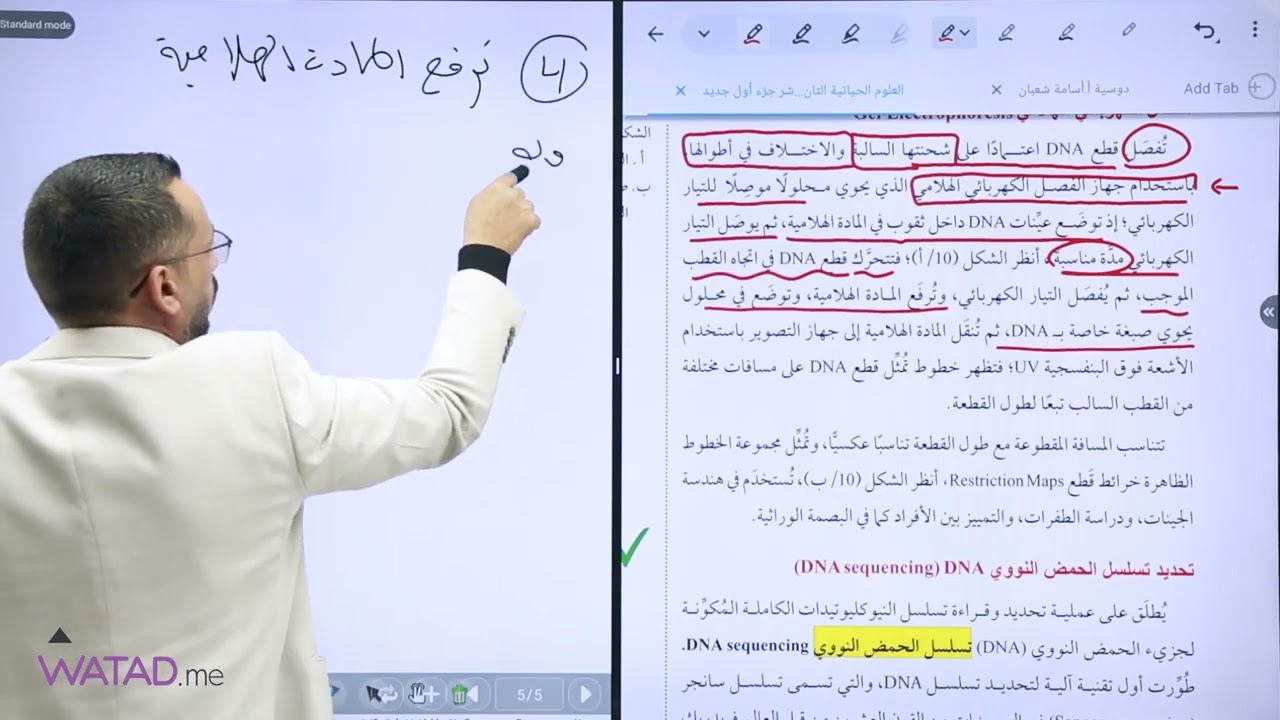 Standard mode
④ ترفع المادة الهلامية
العلوم الحياتية الثان...شر جزء أول جديد
دوسية أ.أسامة شعبان
Add Tab
Gel Electrophoresis
تُفصَل قطع DNA اعتمادًا على شحنتها السالبة والاختلاف في أطوالها
باستخدام جهاز الفصل الكهربائي الهلامي الذي يحوي محلولًا موصِلًا للتيار
الكهربائي؛ إذ توضَع عيِّنات DNA داخل ثقوب في المادة الهلامية، ثم يوصَل التيار
الكهربائي مدَّة مناسبة، أنظر الشكل (10/ أ)؛ فتتحرَّك قطع DNA في اتجاه القطب
الموجب، ثم يُفصَل التيار الكهربائي، وتُرفَع المادة الهلامية، وتوضَع في محلول
يحوي صبغة خاصة بـ DNA، ثم تُنقَل المادة الهلامية إلى جهاز التصوير باستخدام
الأشعة فوق البنفسجية UV؛ فتظهر خطوط تُمثِّل قطع DNA على مسافات مختلفة
من القطب السالب تبعًا لطول القطعة.
تتناسب المسافة المقطوعة مع طول القطعة تناسبًا عكسيًّا، وتُمثِّل مجموعة الخطوط
الظاهرة خرائط قَطع Restriction Maps، أنظر الشكل (10/ ب)، تُستخدَم في هندسة
الجينات، ودراسة الطفرات، والتمييز بين الأفراد كما في البصمة الوراثية.
تحديد تسلسل الحمض النووي DNA (DNA sequencing)
يُطلَق على عملية تحديد وقراءة تسلسل النيوكليوتيدات الكاملة المُكوِّنة
لجزيء الحمض النووي (DNA) تسلسل الحمض النووي DNA sequencing.
طُوِّرت أول تقنية آلية لتحديد تسلسل DNA، والتي تسمى تسلسل سانجر
الشكل
أ.
ب.
5/5
WATAD.me